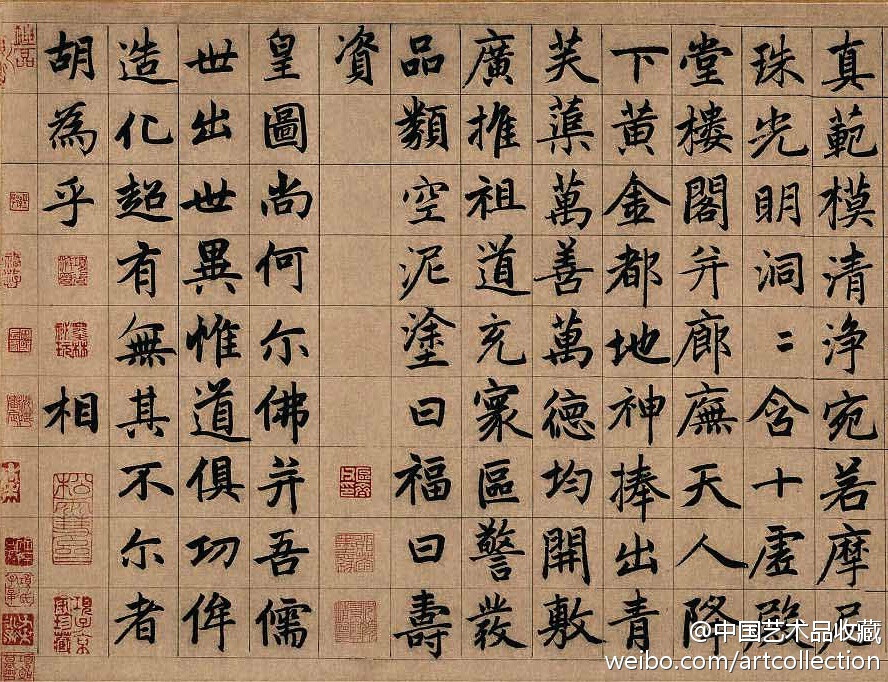 真範模清浄宛若摩尼
珠光明洞〻含十虛殿
堂樓閣并廊廡天人降
下黃金都地神捧出青
芙蕖萬善萬德均開敷
廣推祖道充寰區警發
品類空泥塗曰福曰壽
資
皇圖尚何尒佛并吾儒
世出世異惟道俱功侔
造化超有無其不尒者
胡為乎 相
墨林秘玩
項子京家珍藏
@中国艺术品收藏
weibo.com/artcollection